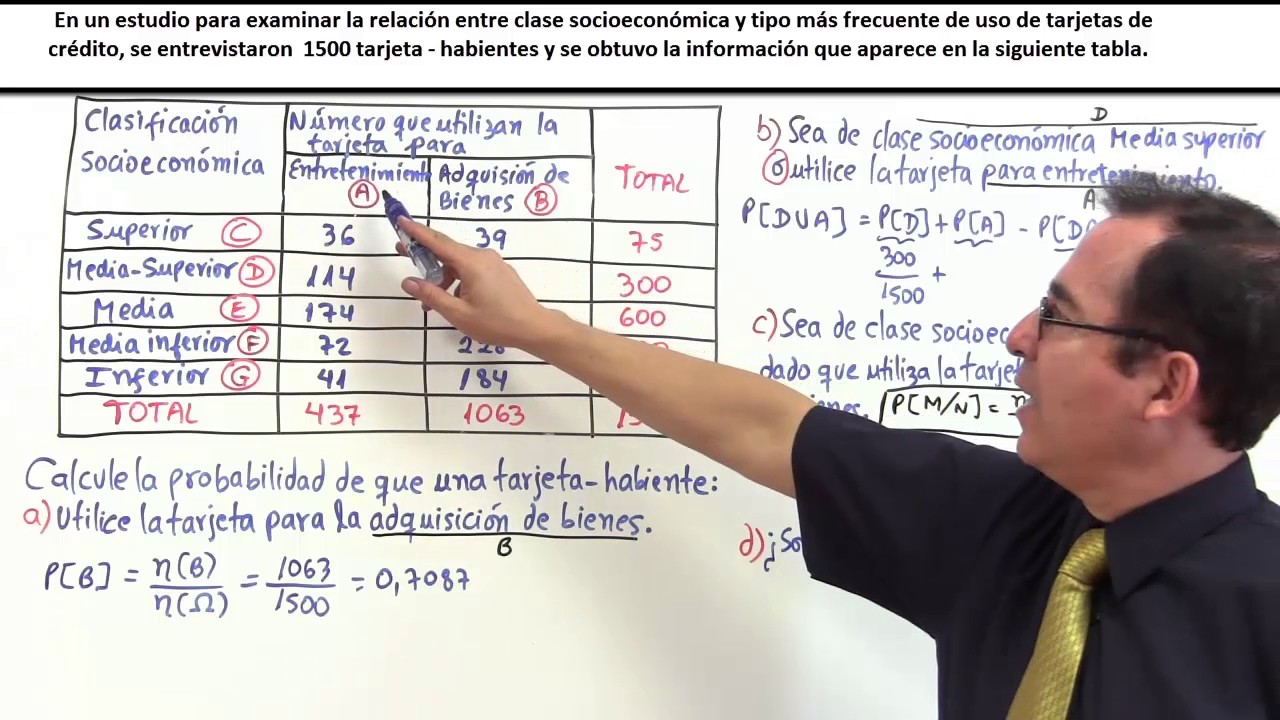 En un estudio para examinar la relación entre clase socioeconómica y tipo más frecuente de uso de tarjetas de
crédito, se entrevistaron 1500 tarjeta - habientes y se obtuvo la información que aparece en la siguiente tabla.
Clasificación
Socioeconómica
Número que utilizan la
tarjeta para
Entretenimiento
A
Adquisión de
Bienes B
TOTAL
Superior C 36 39 75
Media-Superior D 114 300
Media E 174 600
Media inferior F 72
Inferior G 41 184
TOTAL 437 1063
Calcule la probabilidad de que una tarjeta-habiente:
a) Utilice la tarjeta para la adquisición de bienes.
B
P[B] = n(B) / n(Ω) = 1063 / 1500 = 0,7087
D
b) Sea de clase socioeconómica Media superior
ó utilice la tarjeta para entretenimiento.
A
P[D∪A] = P[D] + P[A] - P[D
300 / 1500 +
c) Sea de clase
dado que utiliza la
P[M/N] =
d)